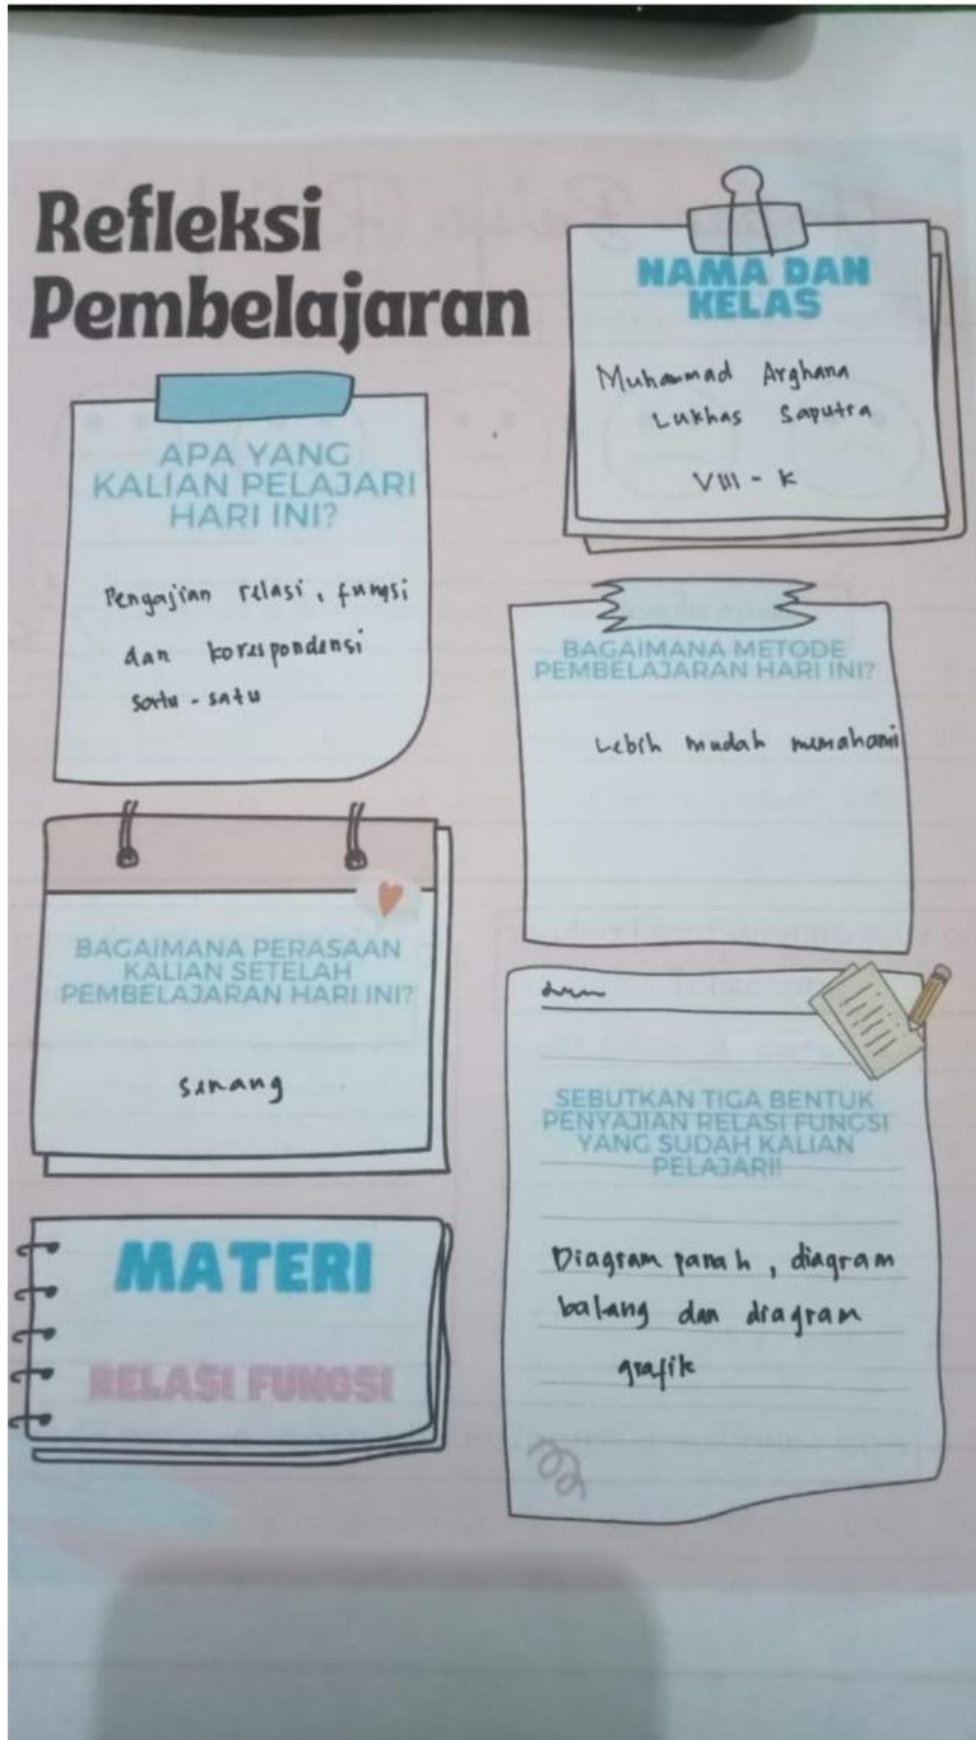 Refleksi
Pembelajaran
NAMA DAN
KELAS
Muhammad Arghana
Lukhas Saputra
VIII - K
APA YANG
KALIAN PELAJARI
HARI INI?
Pengajian relasi, fungsi
dan korespondensi
satu - satu
BAGAIMANA METODE
PEMBELAJARAN HARI INI?
Lebih mudah memahami
BAGAIMANA PERASAAN
KALIAN SETELAH
PEMBELAJARAN HARI INI?
senang
SEBUTKAN TIGA BENTUK
PENYAJIAN RELASI FUNGSI
YANG SUDAH KALIAN
PELAJARI!
Diagram panah, diagram
balang dan diagram
grafik
MATERI
RELASI FUNGSI